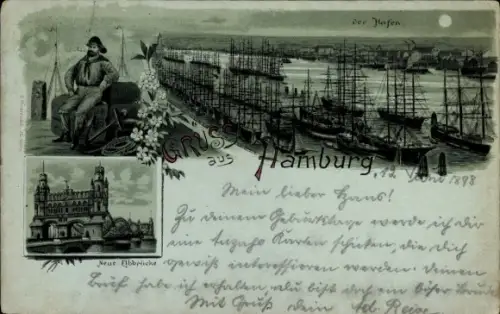 der Hafen.
GRUSS
aus
Hamburg
12 1898
Neue Elbbrücke
Mein lieber Hans!
Zu deinem Geburtstage werde ich dir
eine Karten schicken, die dich
gewiß interessieren werden. deinen
Brief habe ich erhalten, du bist doch ein
Mit Gruß dein